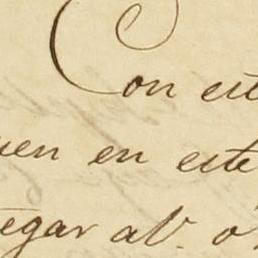 Con est
uen en este
egar al V. o